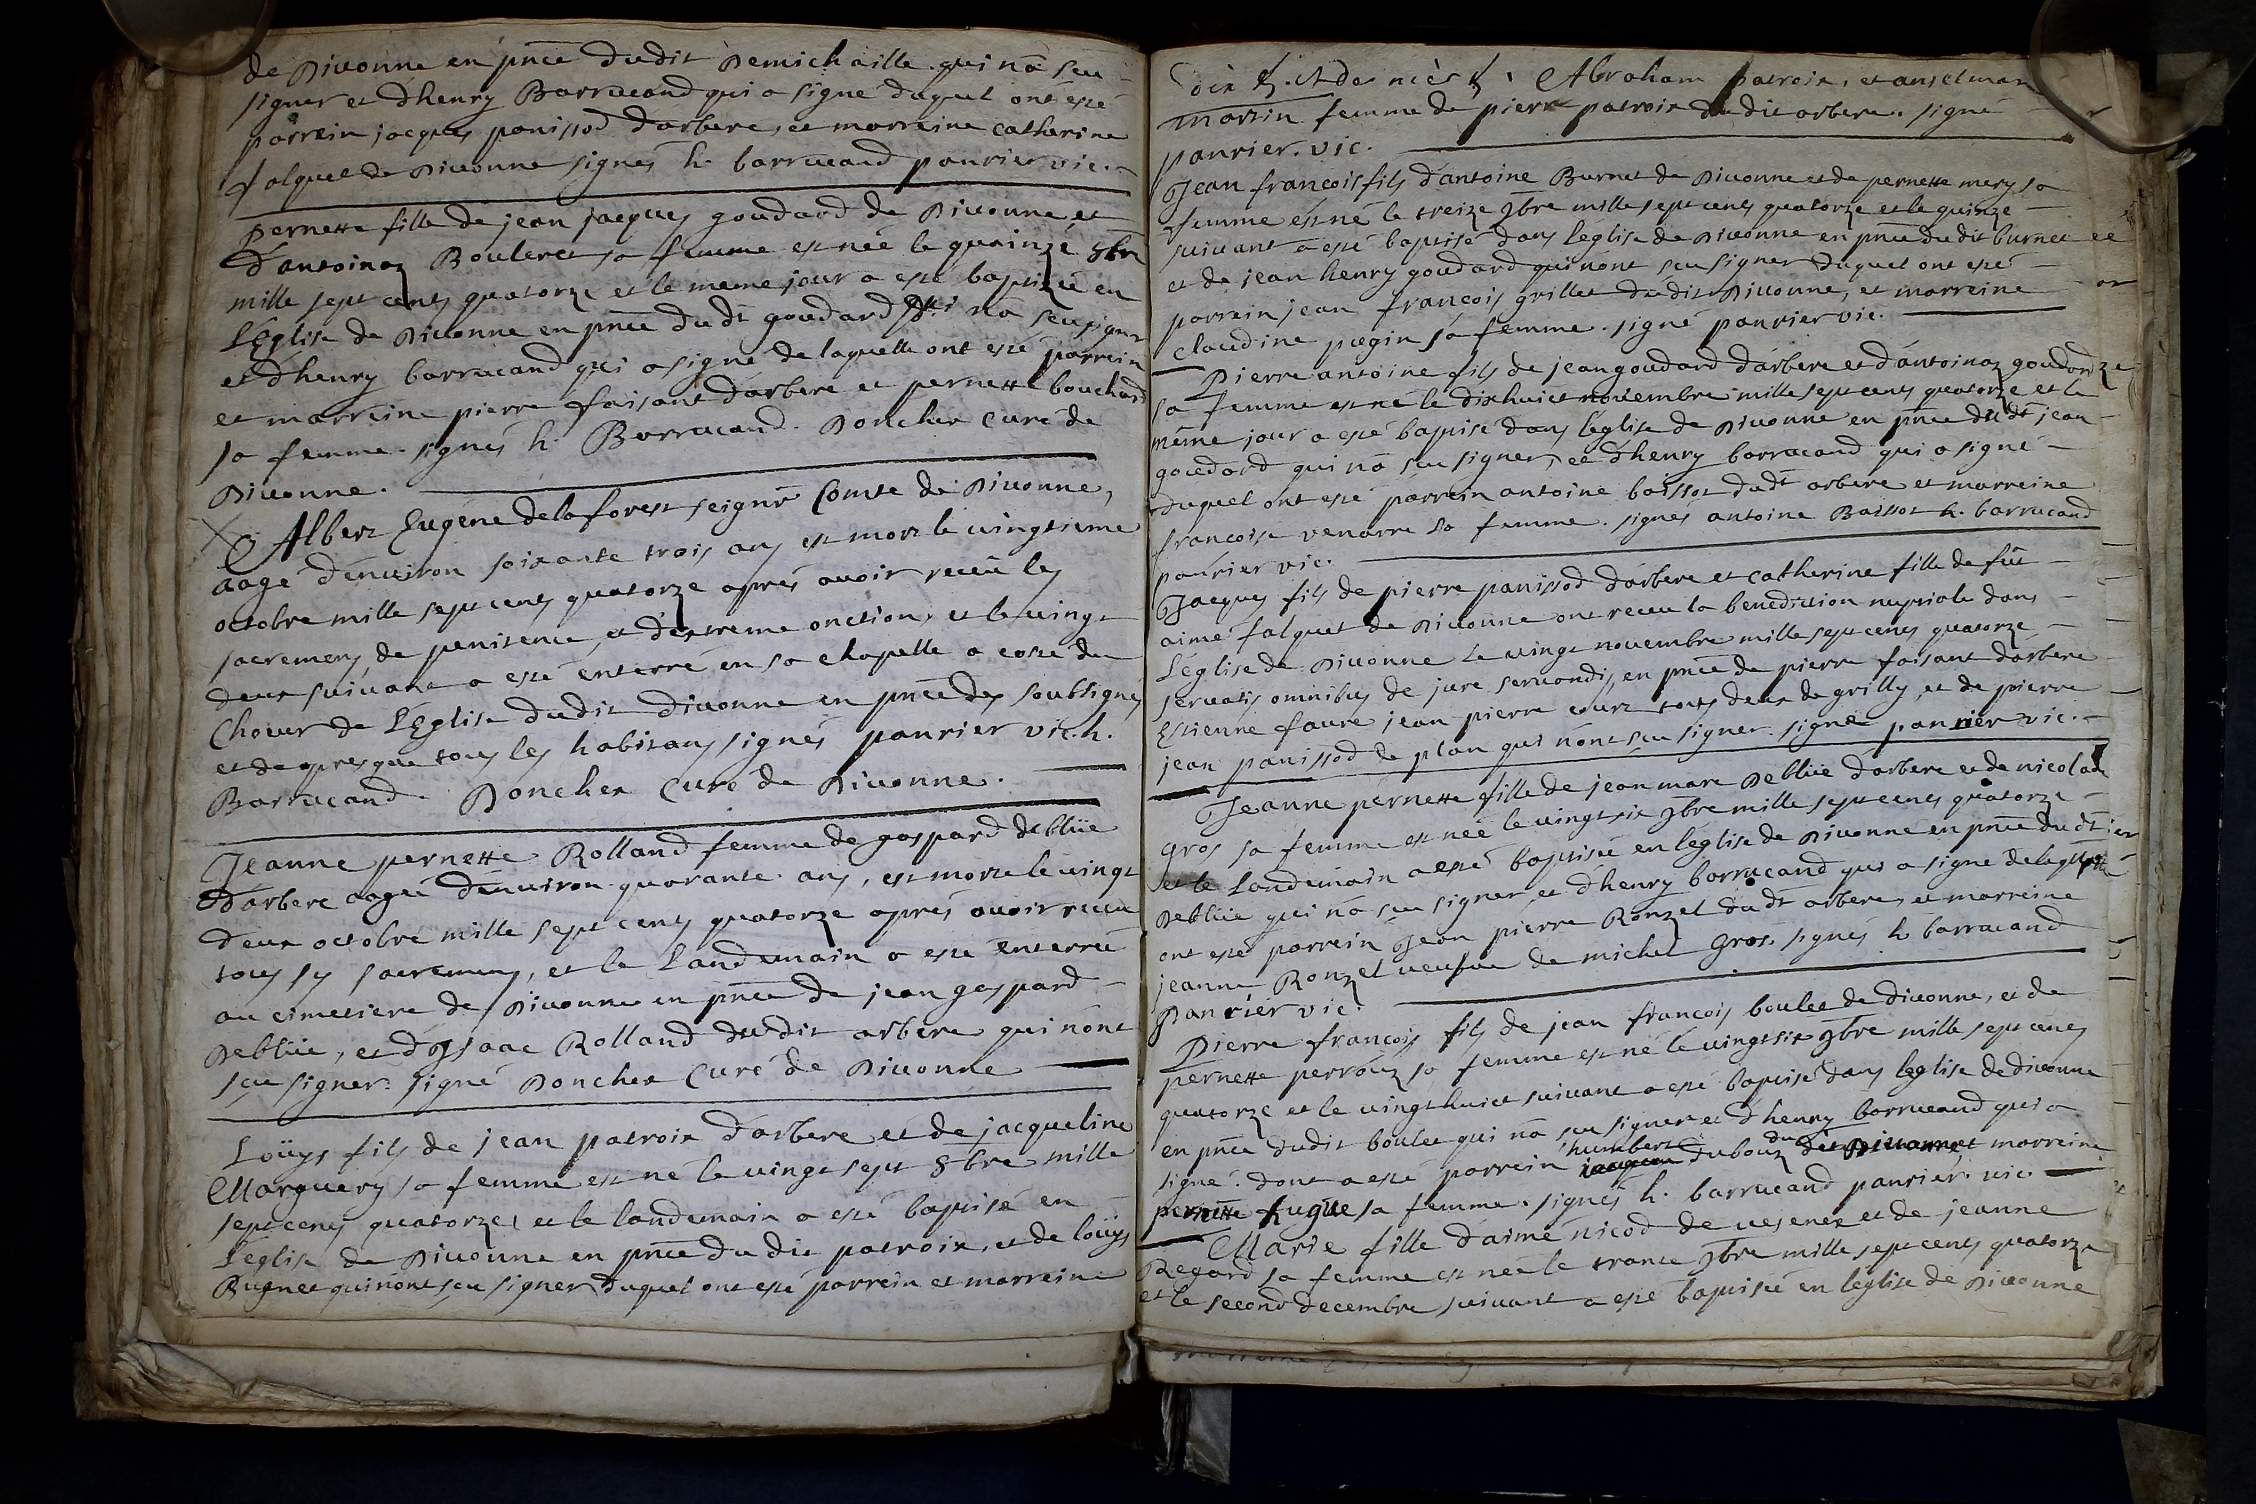 de Diuonne en pnce dudit Demichaille qui na sceu
signer et dhenry Barrucand qui a signé duquel ont esté
parrein jacques panissod darbere, et marreine catherine
falquet de Diuonne signés h. barrucand panrier vic.
Pernette fille de jean jacques goudard de Diuonne et
d'antoinaz Bouleret sa femme est née le quinzé 8bre
mille sept cents quatorze et le meme jour a esté baptizée en
L'Eglise de Diuonne en pnce du dt goudard qui na sceu signer
et d'henry barrucand qui a signé de laquelle ont esté parrein
et marreine pierre faisant darbere et pernette bouchard
sa femme. signés h. Barrucand. Poncher curé de
Diuonne.
Albert Eugene delaforest seignr Comte de Diuonne,
aagé d'enuiron soixante trois ans est mort le uingtieme
octobre mille sept cents quatorze aprés auoir receü les
sacremens de penitence, et d'extreme onction, et le uingt
deux suiuant a esté enterré en sa chapelle a costé du
Choeur de L'Eglise dudit diuonne en pnce des soubsignés
et de presque tous les habitans signés panrier vic. h.
Barrucand. Poncher Curé de Diuonne.
Jeanne pernette Rolland femme de gaspard debliie
darbere aagée denuiron quarante ans, est morte le uingt
deux octobre mille sept cents quatorze aprés auoir receu
tous ses sacremens, et le Landemain a esté Enterrée
au cimetiere de Diuonne en pnce de jean gaspard
Debliie, et d'Isaac Rolland dudit arbere qui nont
sceu signer. signé Poncher Curé de Diuonne
Loüys fils de jean patroix darbere et de jacqueline
Marguery sa femme est né le uingt sept 8bre mille
sept cents quatorze et le landemain a esté baptisé en
l'église de Diuonne en pnce du dit patroix, et de loüys
Bugnet qui nont sceu signer duquel ont esté parrein et marreine
Abraham patroix, et anselman
martin femme de pierre patroix du dit arbere. signé
panrier. vic.
Jean francois fils d'antoine Burnet de Diuonne et de pernette mery sa
femme est né le treize 9bre mille sept cents quatorze et le quinze
suiuant a esté baptisé dans leglise de Diuonne en pnce du dit burnet
et de jean henry goudard qui nont sceu signer duquel ont esté
parrein jean francois grillet dudit Diuonne, et marreine
Claudine pegin sa femme. signé panrier vic.
Pierre antoine fils de jean goudard darbere et d'antoinaz goudard
sa femme est né le dixhuict nouembre mille sept cents quatorze et le
même jour a esté baptisé dans l'église de Diuonne en pnce du dt jean
goudard qui na sceu signer, et dhenry barrucand qui a signé
duquel ont esté parrein antoine baissot du dt arbere et marreine
francoise venarre sa femme. signés antoine Baissot h. barrucand
panrier vic.
Jacques fils de pierre panissod darbere et catherine fille de fût
aimé falquet de Diuonne ont receu la benediction nuptiale dans
L'église de Diuonne le uingt nouembre mille sept cents quatorze
seruatis omnibus de jure seruandis, en pnce de pierre faisant darbere
Estienne faure jean pierre court touts deux de grilly, et de pierre
jean panissod de plan qui nont sceu signer. signé panrier vic.
Jeanne pernette fille de jean marc Debliie darbere et de nicolade
gros sa femme est née le uingt six 9bre mille sept cents quatorze
et le Landemain a esté baptisée en l'église de Diuonne en pnce du dt
Debliie qui na sceu signer, et dhenry barrucand qui a signé de laquelle
ont esté parrein Jean pierre Ronzel du dt arbere, et marreine
jeanne Ronzel ueufue de michel gros. signés h barrucand
Panrier vic.
Pierre francois fils de jean francois boulet de diuonne, et de
pernette perrouz sa femme est né le uingt six 9bre mille sept cents
quatorze et le uingt huict suiuant a esté baptisé dans leglise de diuonne
en pnce dudit boulet qui na sceu signer et d'henry barrucand qui a
signé. dont a esté parrein humbert dubouz du dit Diuonne et marreine
pernette hugue sa femme. signés h. barrucand panrier. vic.
Marie fille d'aimé nicod de uesenex et de jeanne
Regard sa femme est née le trante 9bre mille sept cents quatorze
et le second decembre suiuant a esté baptisée en leglise de Diuonne